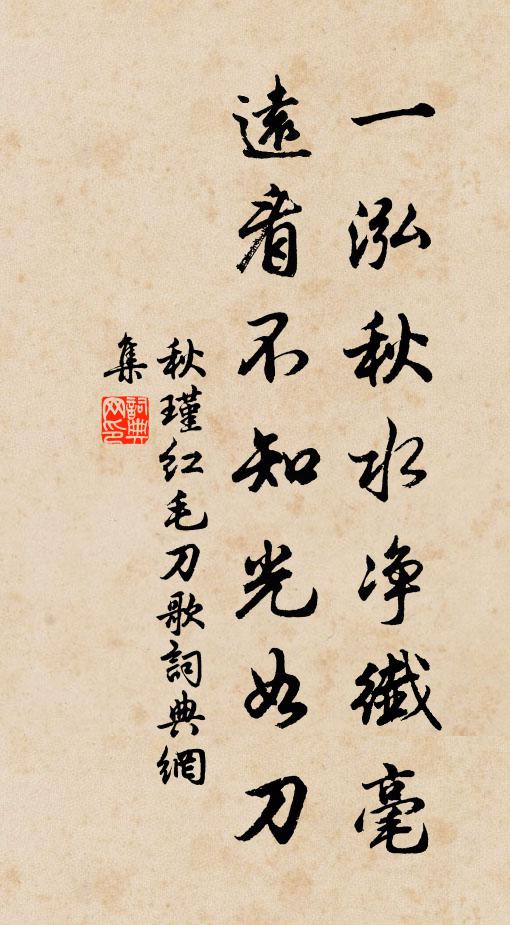 一泓秋水净纖毫
遠看不知光如刀
秋瑾红毛刀歌詞典網
集
詞典網印